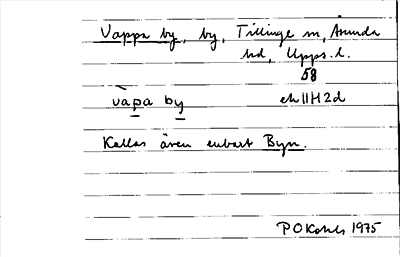 Vappa by, by, Tillinge sn, Åsunda
hd, Upps. l.
58
vàpa by ek 11H2d
Kallas även enbart Byn.
1975